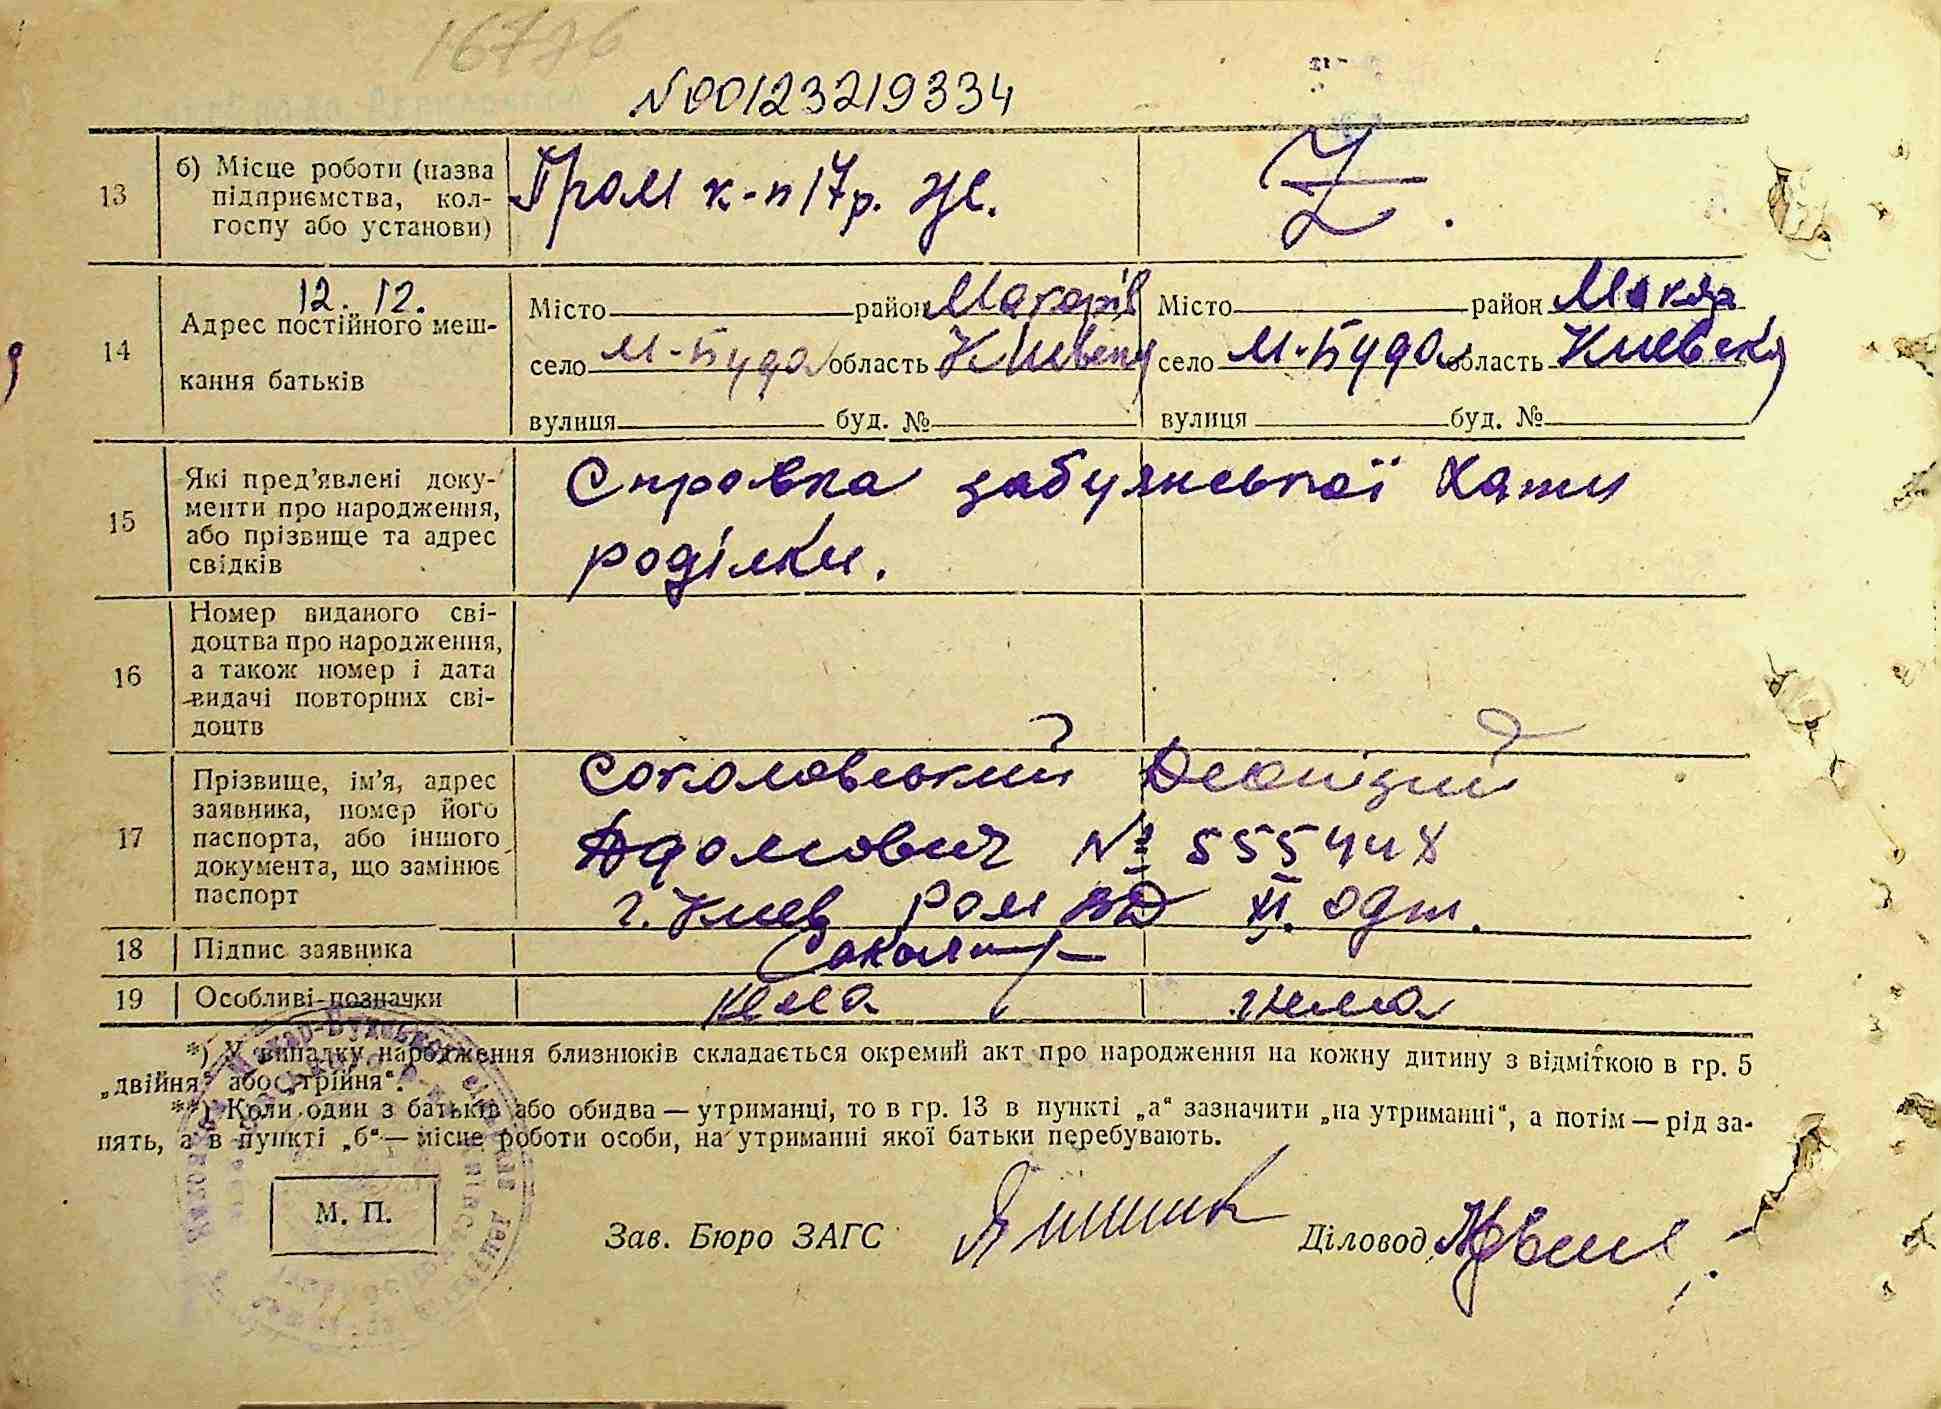 16776
N00123219334
13 б) Місце роботи (назва
підприємства, кол-
госпу або установи)
Пром к-п 17р.
Z.
12. 12.
14 Адрес постійного меш-
кання батьків
Місто район Макарів Місто район Макар
село М-Буда область Киевск село М-Буда область Киевска
вулиця буд. № вулиця буд. №
15 Які пред'явлені доку-
менти про народження,
або прізвище та адрес
свідків
Справка забуянської хати
роділки.
16 Номер виданого сві-
доцтва про народження,
а також номер і дата
видачі повторних сві-
доцтв
17 Прізвище, ім'я, адрес
заявника, номер його
паспорта, або іншого
документа, що замінює
паспорт
Соколовський Деонізий
Адамович № 555448
г. Киев ром ВД XI. одт.
18 Підпис заявника
19 Особливі позначки нема нема
*) У випадку народження близнюків складається окремий акт про народження на кожну дитину з відміткою в гр. 5
„двійня" або „трійня".
**) Коли один з батьків або обидва — утриманці, то в гр. 13 в пункті „а" зазначити „на утриманні", а потім — рід за-
нять, а в пункті „б" — місце роботи особи, на утриманні якої батьки перебувають.
М. П.
Зав. Бюро ЗАГС Діловод